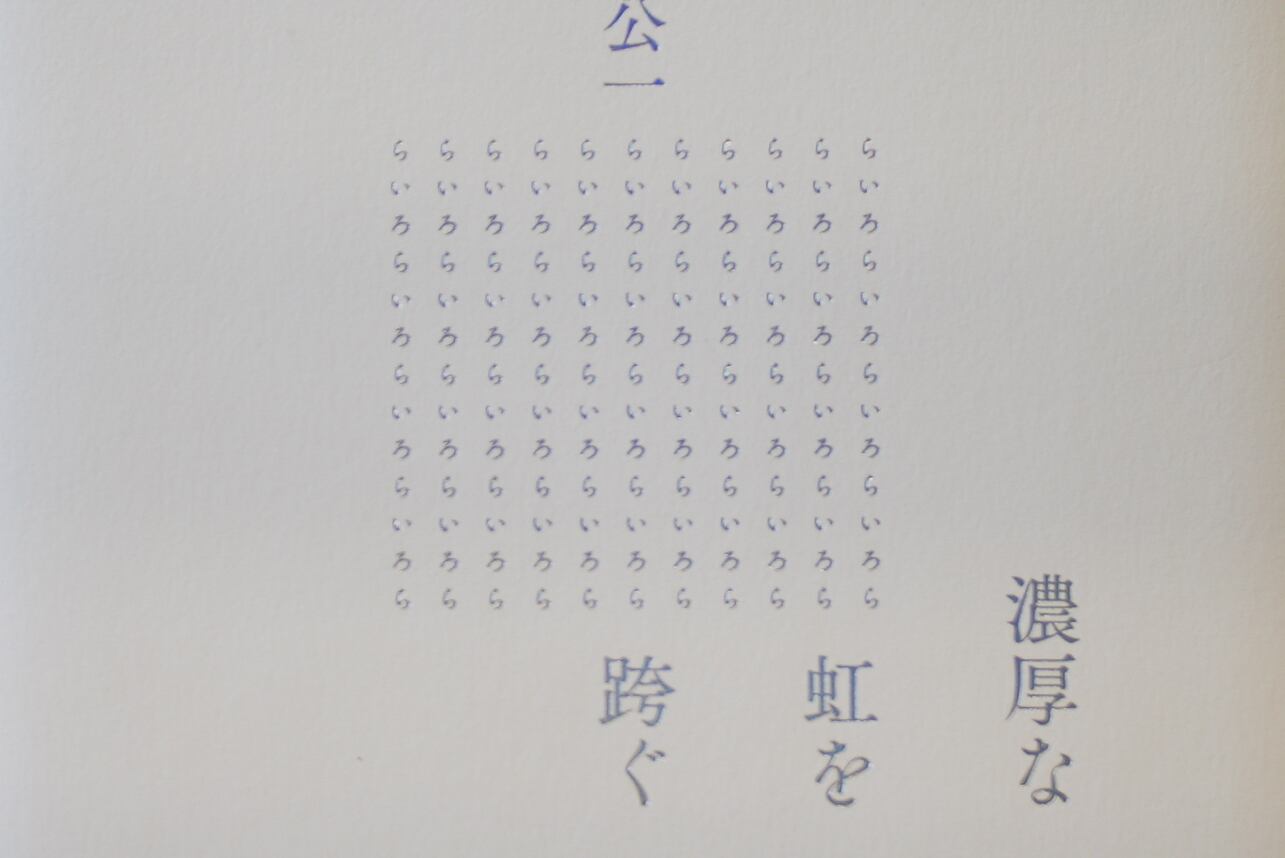 公一
らいろらいろらいろらいろら
らいろらいろらいろらいろら
らいろらいろらいろらいろら
らいろらいろらいろらいろら
らいろらいろらいろらいろら
らいろらいろらいろらいろら
らいろらいろらいろらいろら
らいろらいろらいろらいろら
らいろらいろらいろらいろら
らいろらいろらいろらいろら
らいろらいろらいろらいろら
濃厚な
虹を
跨ぐ